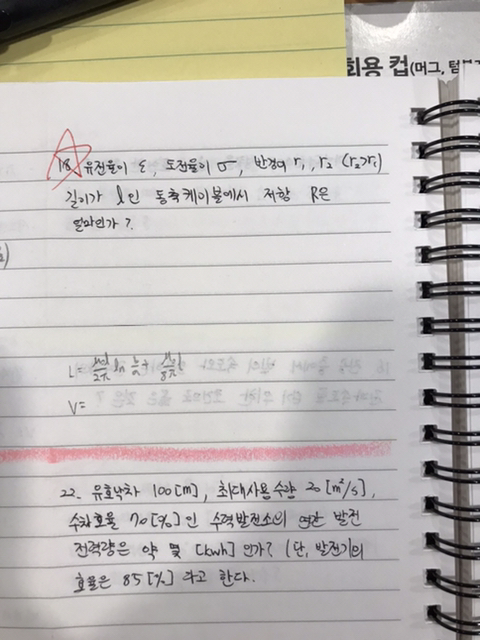 회용 컵(머그, 텀
18. 유전율이 ε, 도전율이 σ, 반경이 r₁, r₂ (r₂>r₁)
길이가 l인 동축케이블에서 저항 R은
얼마인가?
L= μ₀l/2π ln b/a + μ₀l/8π
V=
22. 유효낙차 100[m], 최대사용수량 20[m³/s],
수차효율 70[%]인 수력발전소의 연간 발전
전력량은 약 몇 [kwh]인가? (단, 발전기의
효율은 85[%]라고 한다.